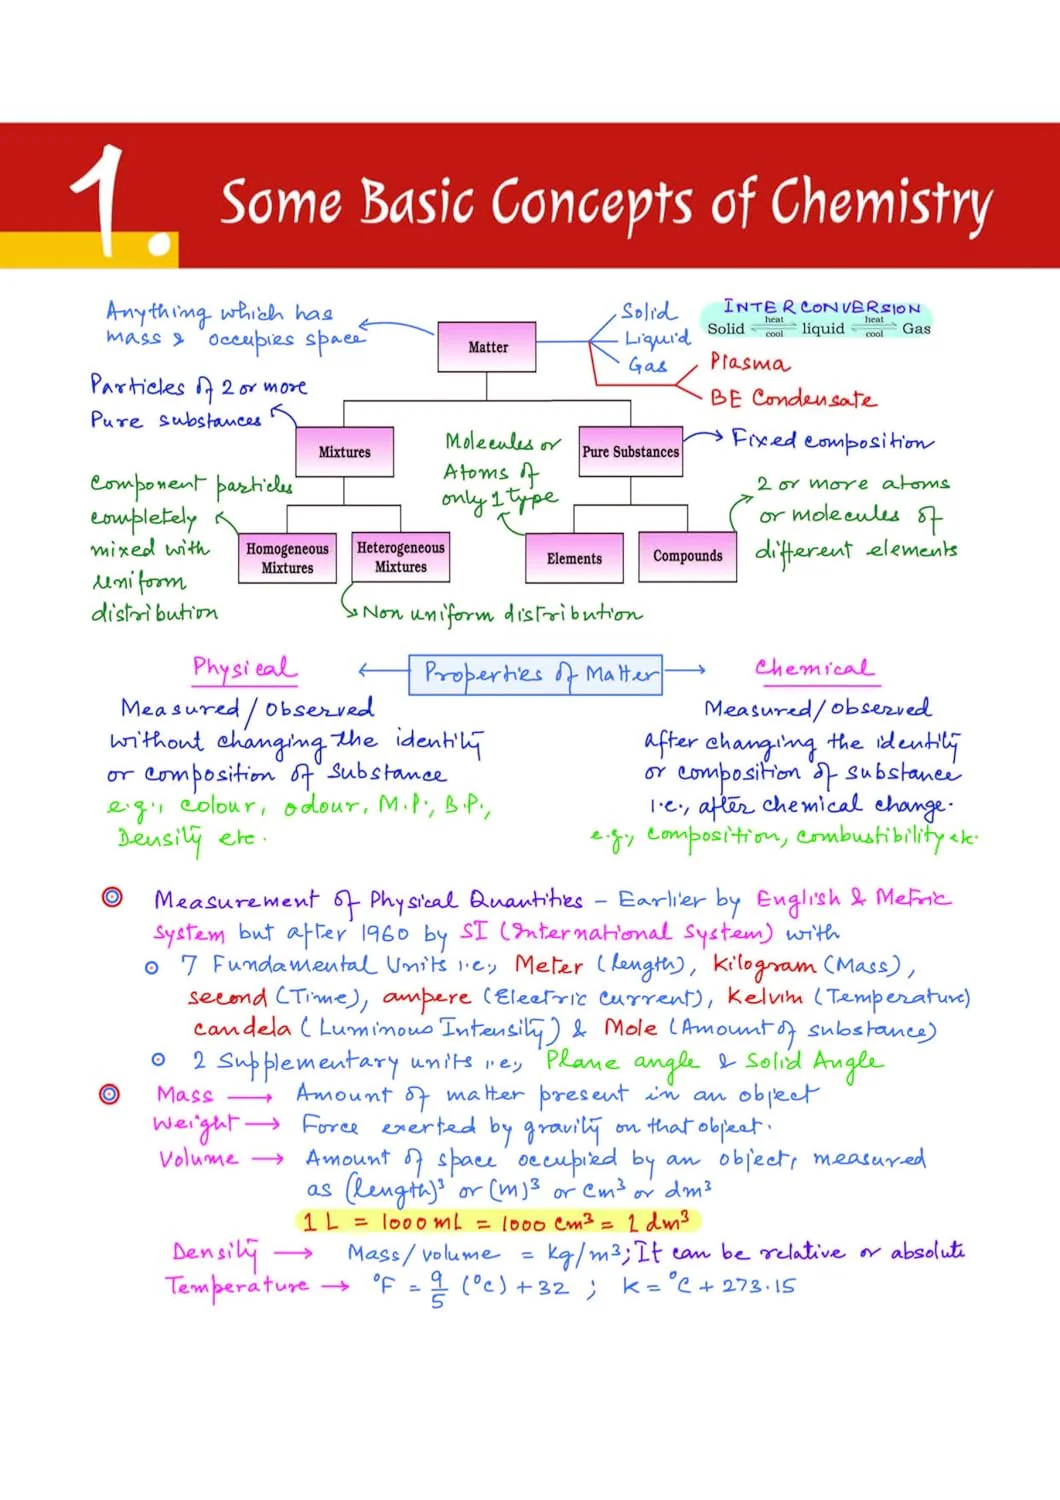 1. Some Basic Concepts of Chemistry
Anything which has
mass & occupies space
Matter
Solid
Liquid
Gas
INTERCONVERSION
Solid heat cool liquid heat cool Gas
Plasma
BE Condensate
Particles of 2 or more
Pure substances
Mixtures
Molecules or
Atoms of
only 1 type
Pure Substances
Fixed composition
Component particles
completely
mixed with
uniform
distribution
Homogeneous
Mixtures
Heterogeneous
Mixtures
Elements
Compounds
2 or more atoms
or molecules of
different elements
Non uniform distribution
Physical
Properties of Matter
Chemical
Measured/Observed
without changing the identity
or composition of substance
e.g., colour, odour, M.P., B.P.,
Density etc.
Measured/observed
after changing the identity
or composition of substance
i.e., after chemical change.
e.g., composition, combustibility etc.
Measurement of Physical Quantities – Earlier by English & Metric
system but after 1960 by SI (International System) with
7 Fundamental Units i.e., Meter (length), Kilogram (Mass),
second (Time), ampere (Electric Current), Kelvin (Temperature)
candela (Luminous Intensity) & Mole (Amount of substance)
2 Supplementary units i.e., Plane angle & Solid Angle
Mass → Amount of matter present in an object
Weight → Force exerted by gravity on that object.
Volume → Amount of space occupied by an object, measured
as (length)³ or (m)³ or cm³ or dm³
1 L = 1000 mL = 1000 cm³ = 1 dm³
Density → Mass/volume = kg/m³; It can be relative or absolute
Temperature → °F = 9/5 (°C) + 32 ; K = °C + 273.15